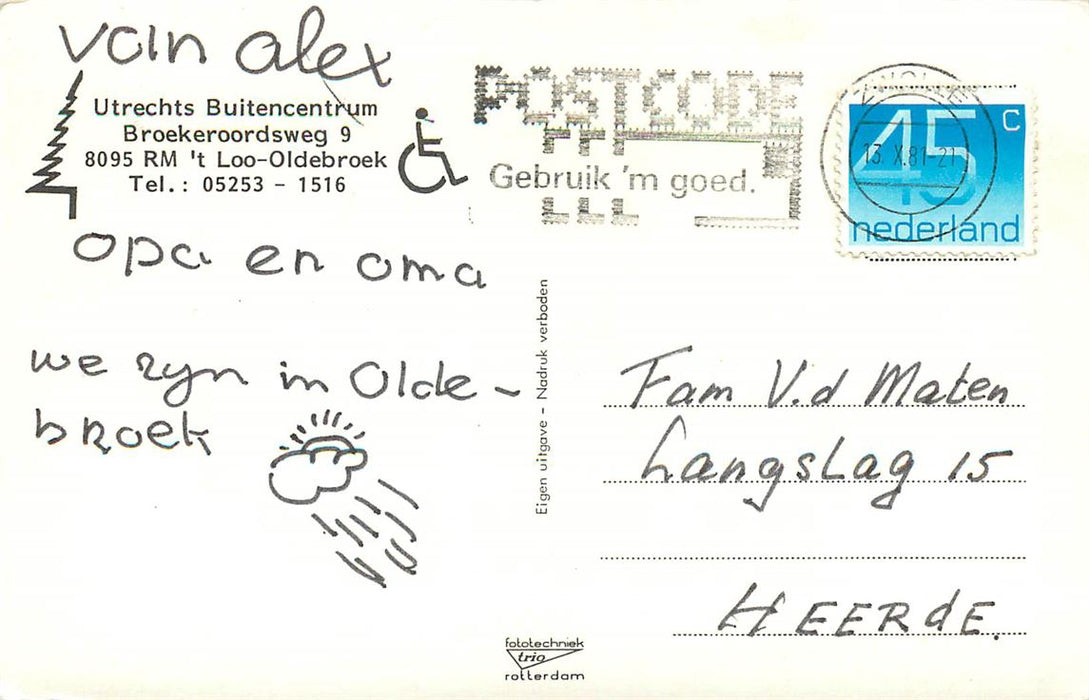 van alex
Utrechts Buitencentrum
Broekeroordsweg 9
8095 RM 't Loo-Oldebroek
Tel.: 05253 - 1516
opa en oma
we zyn in Olde -
broek
POSTCODE
Gebruik 'm goed.
13.X.81-21
45 c
nederland
Eigen uitgave - Nadruk verboden
Fam V.d Maten
Langslag 15
HEERdE.
fototechniek
trio
rotterdam